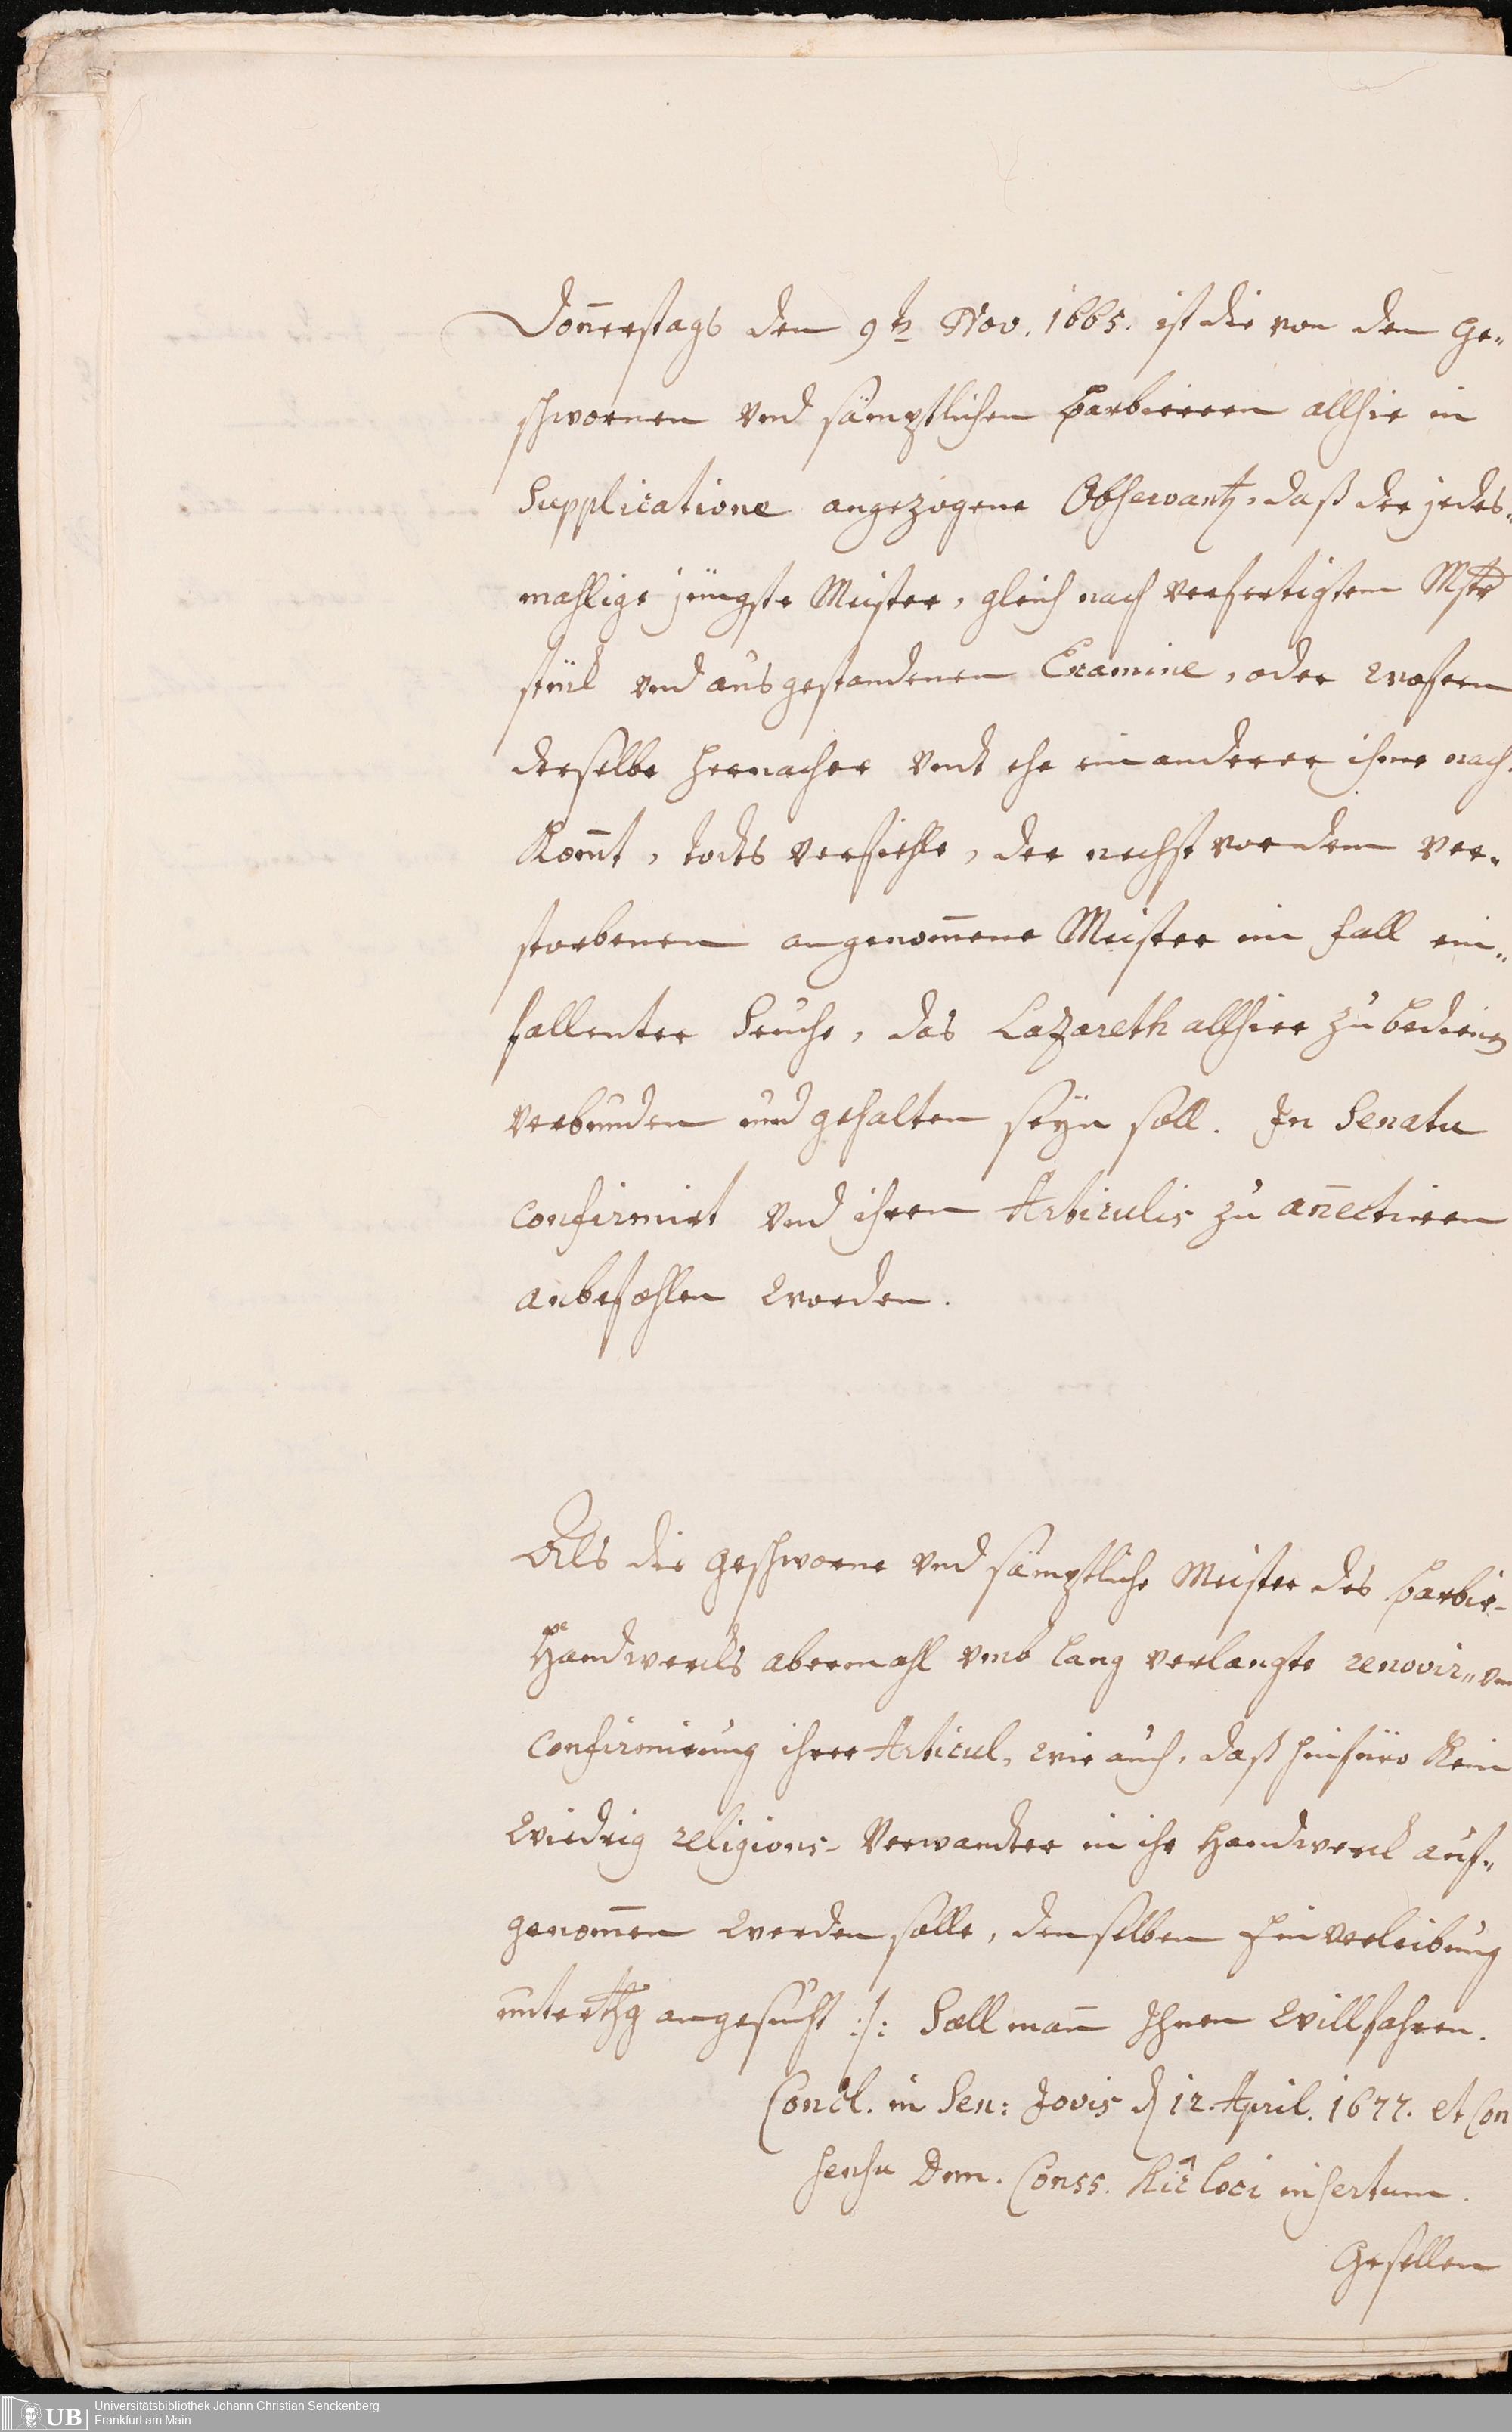 Donnerstags den 9t. Nov. 1665. ist die von den Ge„
schwornen vnd sämptlichen Barbierern allhie in
Supplicatione angezogene Observantz, daß der jedes„
mahlige jüngste Meister, gleich nach verfertigtem Mstr
stück vnd ausgestandenem Examine, oder wofern
derselbe hernacher vndt ehe ein anderer ihme nach„
kom̄t, todts verfiehle, der nechst vor dem ver„
storbenen angenom̄ene Meister im fall ein„
fallenter Seuche, das Lazareth allhier zu bedienen
verbunden und gehalten seyn soll. In Senatu
confirmirt vnd ihren Articulis zu an̄ectiren
anbefohlen worden.
Als die geschworne vnd sämptliche Meister des Barbir-
Handwercks abermahl vmb lang verlangte renovir„ vn
confirmirung ihrer Articul, wie auch, daß hinfüro kein
wiedrig religions-Verwandter in ihr Handwerck auf„
genom̄en werden solle, denselben Einverleibung
unterthg angesucht :/: Soll man̄ Ihnen willfahren.
Concl. in Sen: Jovis d 12. April. 1677. et Con
sensu Dnn. Conss. hic loci insertum.
Gesellen
UB
Universitätsbibliothek Johann Christian Senckenberg
Frankfurt am Main